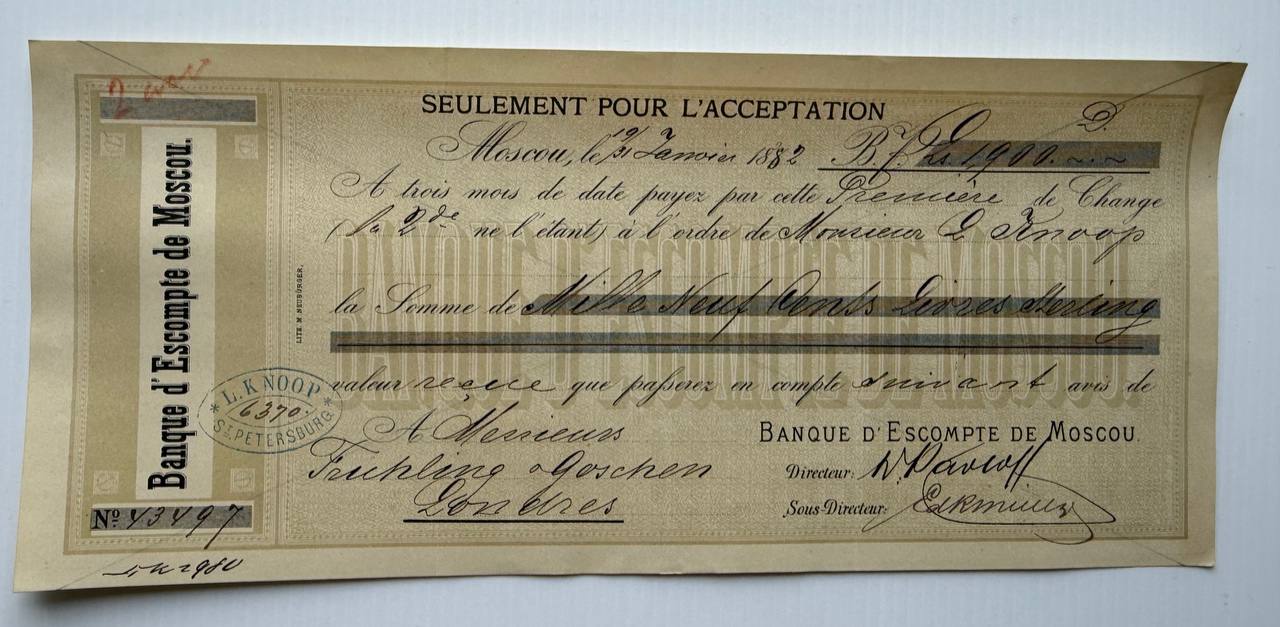 SEULEMENT POUR L'ACCEPTATION
Moscou, le 19/31 Janvier 1882 B.P. Ls 1900.~.~
A trois mois de date payez par cette Première de Change
(la 2de ne l'étant) à l'ordre de Monsieur L Knoop
la Somme de Mille Neuf Cents Livres Sterling
valeur reçue que passerez en compte suivant avis de
A Messieurs
Fruhling & Goschen
Londres
BANQUE D'ESCOMPTE DE MOSCOU.
Directeur:
Sous-Directeur:
Banque d'Escompte de Moscou.
No. 43497
L. KNOOP
6370
ST. PETERSBURG
LITH. M. NEUBÜRGER.
BANQUE D'ESCOMPTE DE MOSCOU
2